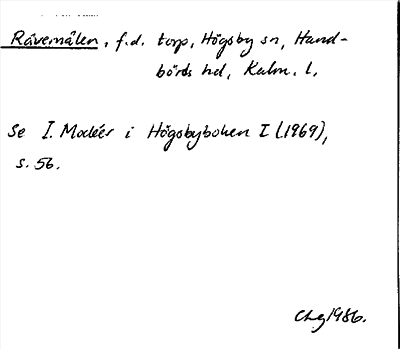 Rävemålen, f.d. torp, Högsby sn, Hand-
börds hd, Kalm. l.
Se I. Modéer i Högsbyboken I (1969),
s. 56.
CLg 1986.